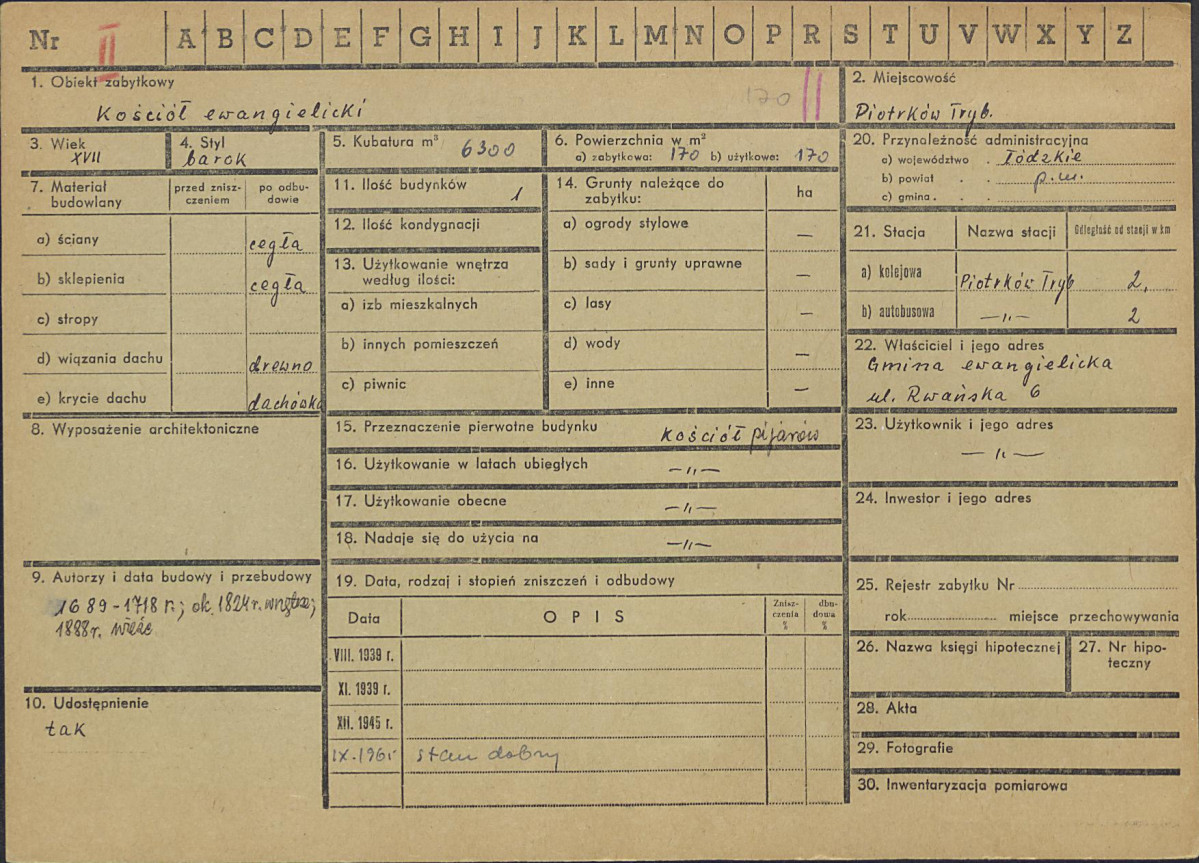 Nr II A B C D E F G H I J K L M N O P R S T U V W X Y Z
1. Obiekt zabytkowy
Kościół ewangielicki
170 ||
2. Miejscowość
Piotrków Tryb.
3. Wiek
XVII
4. Styl
barok
5. Kubatura m³ 6300
6. Powierzchnia w m²
a) zabytkowa: 170 b) użytkowa: 170
20. Przynależność administracyjna
a) województwo . Łódzkie
b) powiat . . p.m.
c) gmina . . .
7. Materiał budowlany
przed zniszczeniem
po odbudowie
a) ściany cegła
b) sklepienia cegła
c) stropy
d) wiązania dachu drewno
e) krycie dachu dachówka
11. Ilość budynków 1
12. Ilość kondygnacji
13. Użytkowanie wnętrza
według ilości:
a) izb mieszkalnych
b) innych pomieszczeń
c) piwnic
14. Grunty należące do
zabytku:
ha
a) ogrody stylowe —
b) sady i grunty uprawne —
c) lasy —
d) wody —
e) inne —
21. Stacja Nazwa stacji Odległość od stacji w km
a) kolejowa Piotrków Tryb 2,
b) autobusowa —„— 2
22. Właściciel i jego adres
Gmina ewangielicka
ul. Rwańska 6
8. Wyposażenie architektoniczne
15. Przeznaczenie pierwotne budynku kościół pijarów
16. Użytkowanie w latach ubiegłych —„—
17. Użytkowanie obecne —„—
18. Nadaje się do użycia na —„—
23. Użytkownik i jego adres
—„—
24. Inwestor i jego adres
9. Autorzy i data budowy i przebudowy
1689-1718 r.; ok. 1824 r. wnętrze;
1888 r. wieże
10. Udostępnienie
tak
19. Data, rodzaj i stopień zniszczeń i odbudowy
Data OPIS Zniszczenia % dbudowa %
VIII. 1939 r.
XI. 1939 r.
XII. 1945 r.
IX.1965 stan dobry
25. Rejestr zabytku Nr
rok miejsce przechowywania
26. Nazwa księgi hipotecznej
27. Nr hipoteczny
28. Akta
29. Fotografie
30. Inwentaryzacja pomiarowa